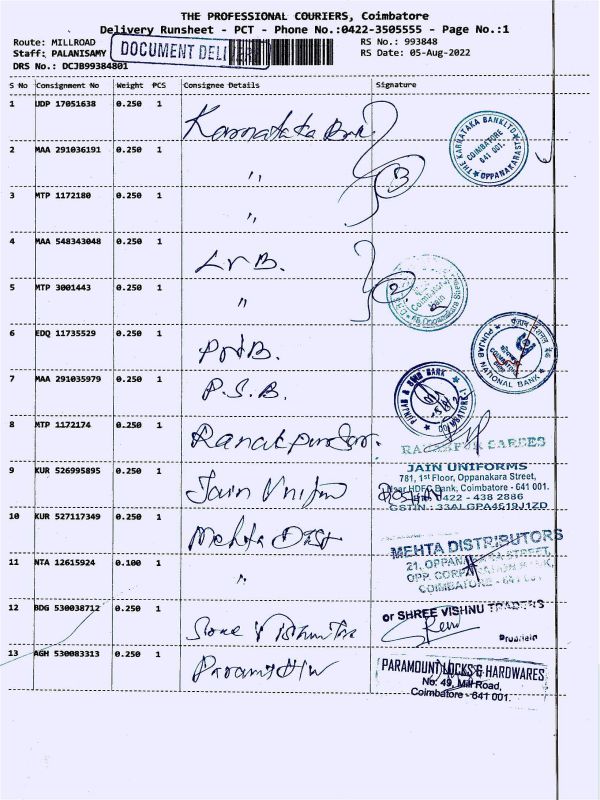 THE PROFESSIONAL COURIERS, Coimbatore
Delivery Runsheet - PCT - Phone No.:0422-3505555 - Page No.:1
Route: MILLROAD
RS No.: 993848
Staff: PALANISAMY
RS Date: 05-Aug-2022
DOCUMENT DELI
DRS No.: DCJB99384801
S No Consignment No Weight PCS Consignee Details Signature
1 UDP 17051638 0.250 1 Karnataka Bank
THE KARNATAKA BANK LTD
COIMBATORE
641 001.
OPPANAKARAST
2 MAA 291036191 0.250 1 "
3
3 MTP 1172180 0.250 1 "
4 MAA 548343048 0.250 1 LVB.
5 MTP 3001443 0.250 1 "
2
Coimbatore
Main
Oppanakara Street
6 EDQ 11735529 0.250 1 PNB.
PUNJAB NATIONAL BANK
7 MAA 291035979 0.250 1 P.S.B.
PUNJAB & SIND BANK
COIMBATORE-1
8 MTP 1172174 0.250 1
SAREES
9 KUR 526995895 0.250 1 Jain Uniform
JAIN UNIFORMS
781, 1st Floor, Oppanakara Street,
Near HDFC Bank, Coimbatore - 641 001.
0422 - 438 2886
GSTIN.: 33ALGPA4619J1ZD
10 KUR 527117349 0.250 1 Mehta Dist
MEHTA DISTRIBUTORS
11 NTA 12615924 0.100 1 "
21, OPPANAKARA STREET,
OPP. CORPORATION BANK,
COIMBATORE - 641 001
12 BDG 530038712 0.250 1 Sree Vishnu Tra
or SHREE VISHNU TRADERS
13 AGH 530083313 0.250 1 Paramount H/W
PARAMOUNT LOCKS & HARDWARES
No: 49, Mill Road,
Coimbatore - 641 001.